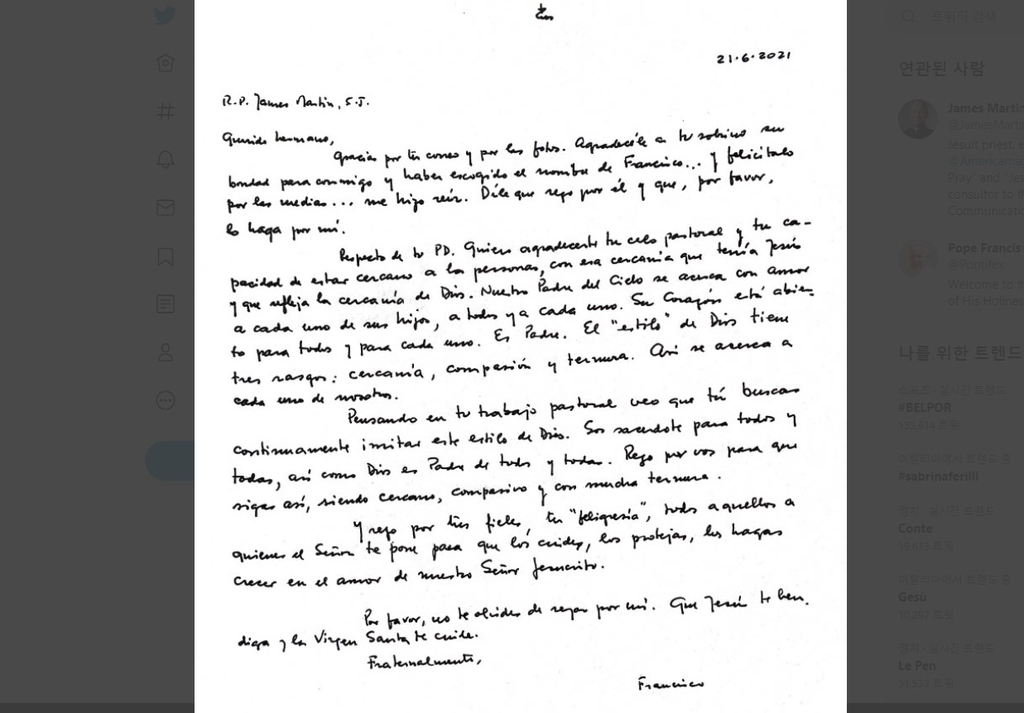 21·6·2021
트위터 검색
연관된 사람
R.P. James Martin, S.J.
James Martin
@JamesMartin
Querido hermano,
Jesuit priest, e
Gracias por tu correo y por las fotos. Agradecele a tu sobrino su
@Americamag
bondad para conmigo y haber escogido el nombre de Francisco... y felicitalo
Pray" and "Jes
por las medias... me hizo reír. Dile que rezo por él y que, por favor,
consultor to th
Communicatio
lo haga por mí.
Respecto de tu PD. Quiero agradecerte tu celo pastoral y tu ca-
Pope Francis
pacidad de estar cercano a las personas, con esa cercanía que tenía Jesús
@Pontifex
y que refleja la cercanía de Dios. Nuestro Padre del Cielo se acerca con amor
Welcome to th
a cada uno de sus hijos, a todos y a cada uno. Su Corazón está abier-
of His Holines
to para todos y para cada uno. Es Padre. El "estilo" de Dios tiene
tres rasgos: cercanía, compasión y ternura. Así se acerca a
나를 위한 트렌드
cada uno de nosotros.
스포츠 · 실시간 트렌드
Pensando en tu trabajo pastoral veo que tú buscas
#BELPOR
continuamente imitar este estilo de Dios. Sos sacerdote para todos y
트윗
todas, así como Dios es Padre de todos y todas. Rezo por vos para que
이탈리아에서 트렌드 중
sigas así, siendo cercano, compasivo y con mucha ternura.
#sabrinaferilli
Y rezo por tus fieles, tu "feligresía", todos aquellos a
정치 · 실시간 트렌드
quienes el Señor te pone para que los cuides, los protejas, los hagas
Conte
트윗
crecer en el amor de nuestro Señor Jesucristo.
이탈리아에서 트렌드 중
Gesù
Por favor, no te olvides de rezar por mí. Que Jesús te ben-
트윗
diga y la Virgen Santa te cuide.
정치 · 실시간 트렌드
Fraternalmente,
Le Pen
Francisco
트윗